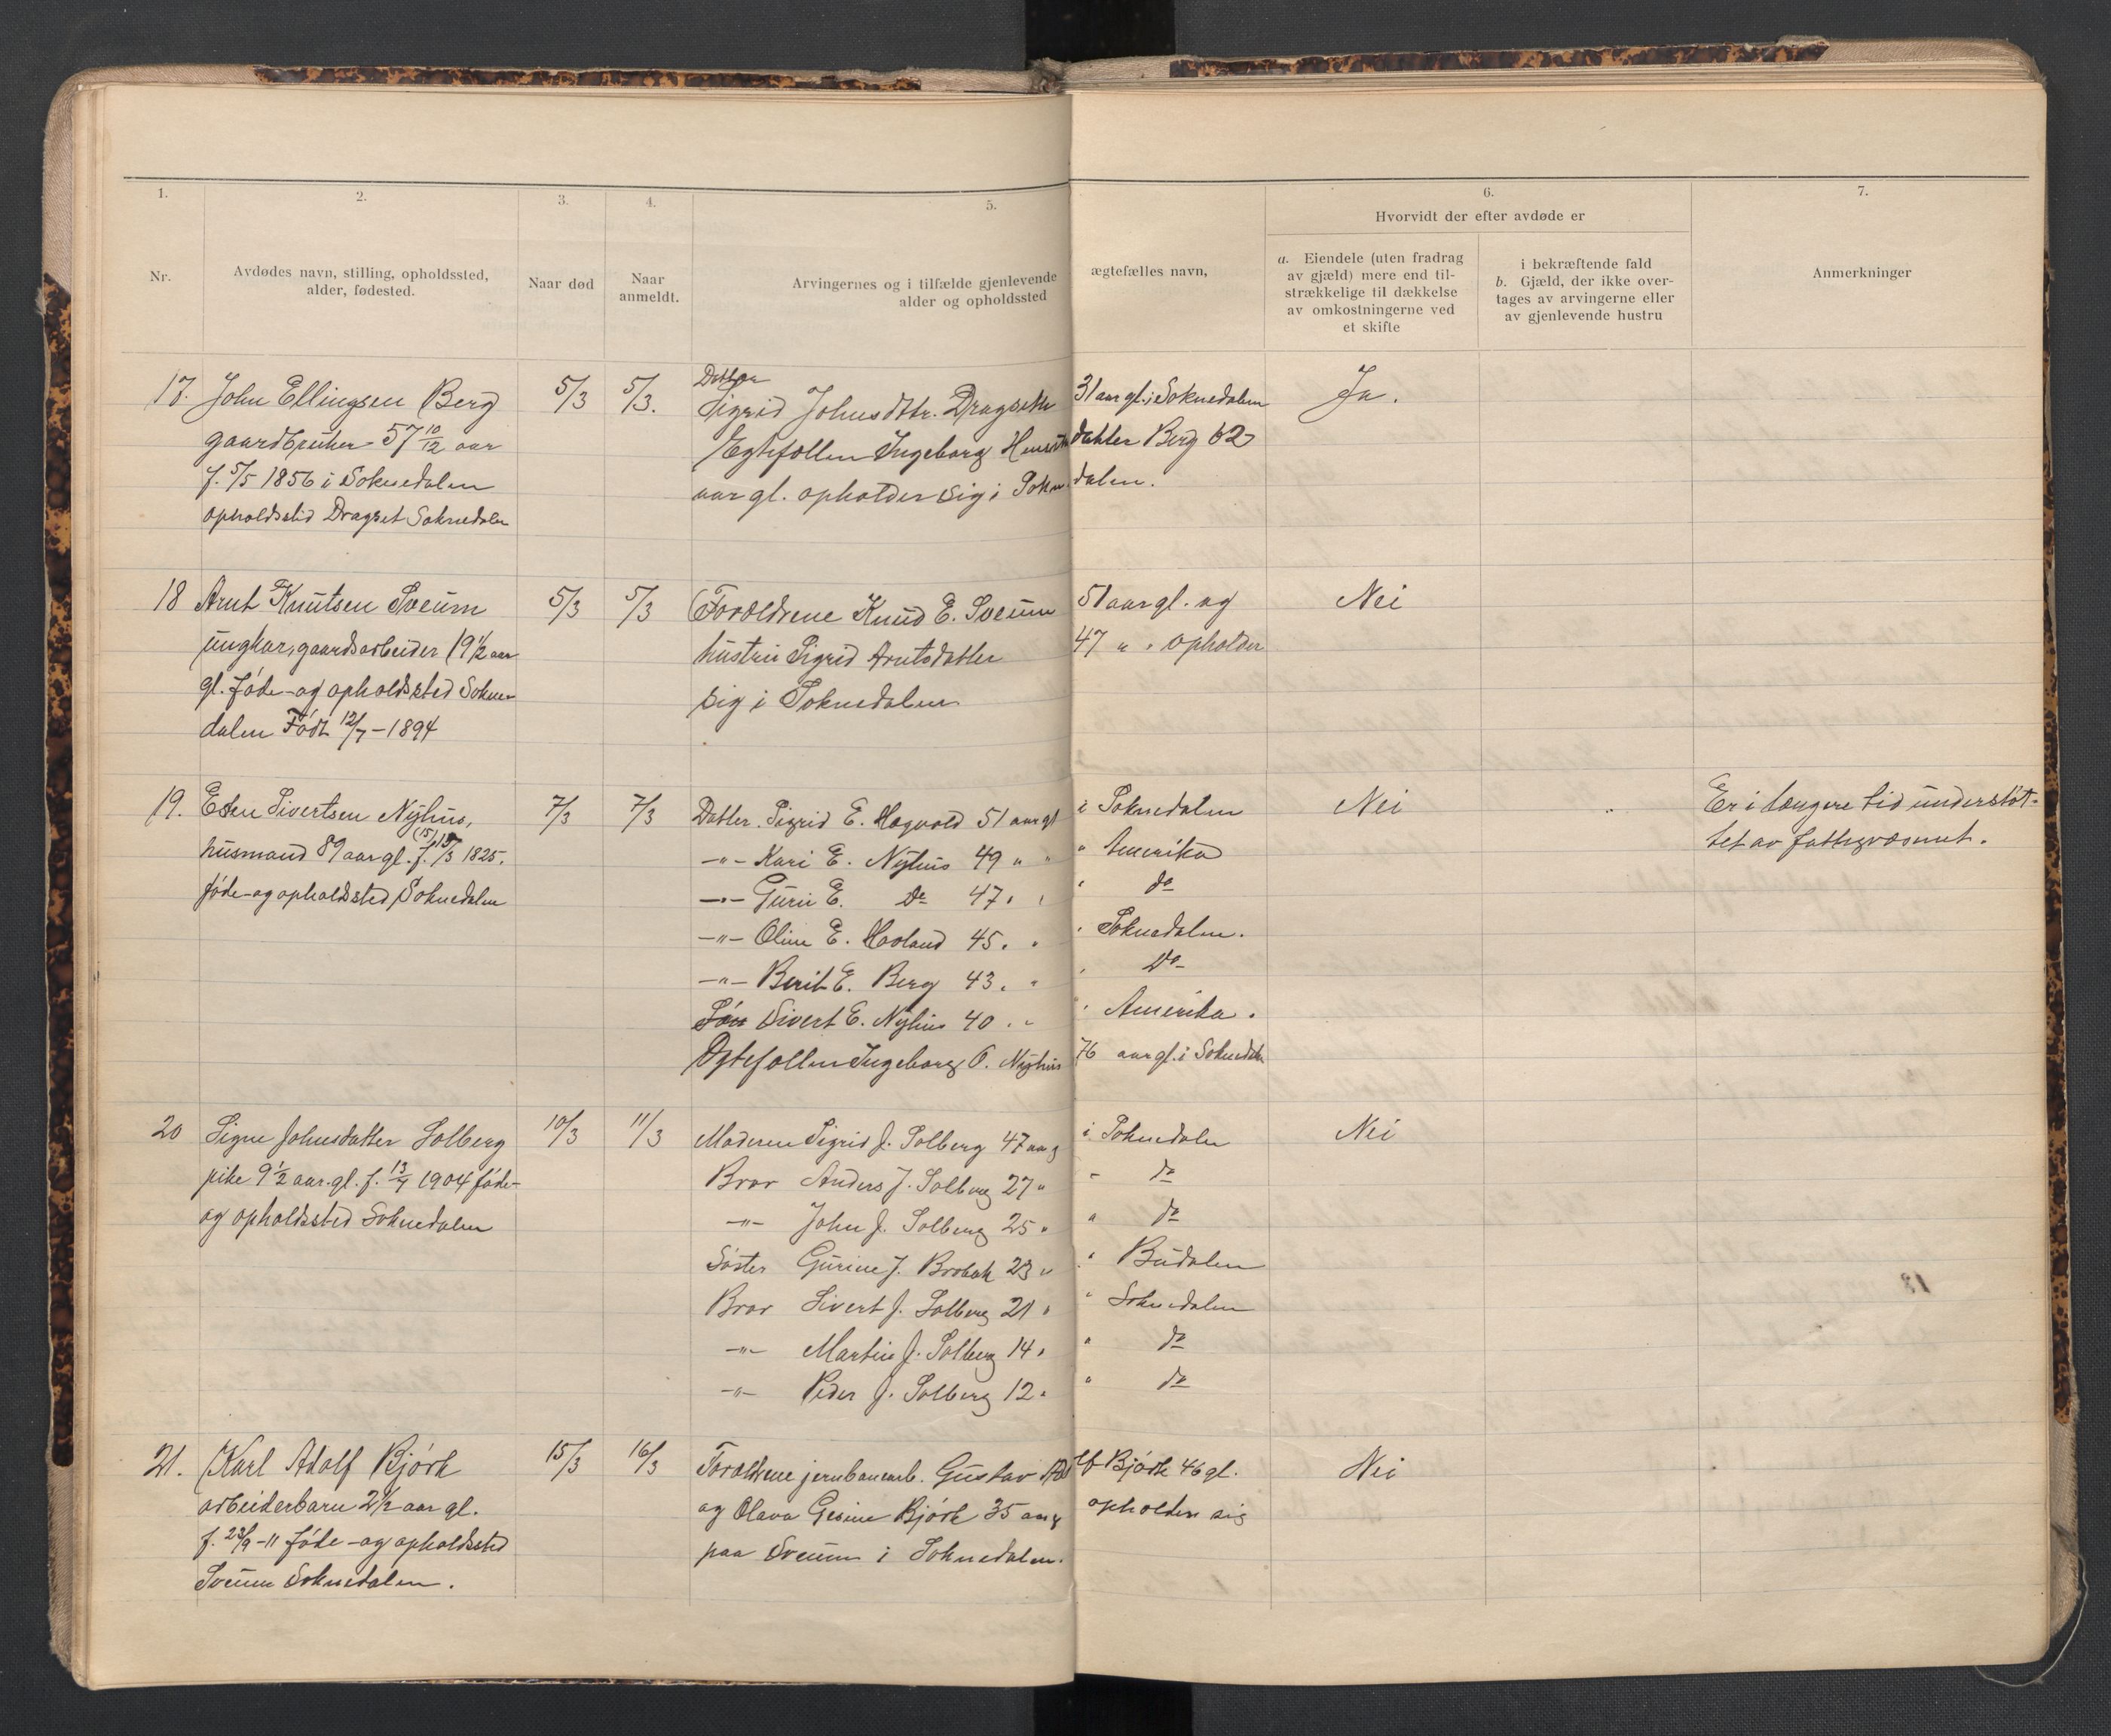 1.
2.
3.
4.
5.
6.
7.
Hvorvidt der efter avdøde er
Nr.
Avdødes navn, stilling, opholdssted,
alder, fødested.
Naar død
Naar
anmeldt.
Arvingernes og i tilfælde gjenlevende ægtefælles navn,
alder og opholdssted
a. Eiendele (uten fradrag
av gjæld) mere end til-
strækkelige til dækkelse
av omkostningerne ved
et skifte
i bekræftende fald
b. Gjæld, der ikke over-
tages av arvingerne eller
av gjenlevende hustru
Anmerkninger
17. John Ellingsen Berg
gaardbruker 57 10/12 aar
f. 5/5 1856 i Soknedalen
opholdssted Dragset Soknedalen
5/3
5/3.
Datter
Sigrid Johnsdttr. Dragseth 31 aar gl. i Soknedalen
Egtefællen Ingeborg datter Berg 62
aar gl. opholder sig i Sokne dalen.
Ja.
18 Arnt Knutsen Sveum
ungkar, gaardsarbeider 19 1/2 aar
gl. føde- og opholdssted Sokne-
dalen Født 12/7 - 1894
5/3
5/3
Forældrene Knud E. Sveum 51 aar gl. og
hustru Sigrid Arntsdatter 47 " " opholder
sig i Soknedalen
Nei
19. Esten Sivertsen Nyhus,
husmand 89 aar gl. f. (15/3) 15/3 1825.
føde- og opholdssted Soknedalen
7/3
7/3
Datter. Sigrid E. Hagvold 51 aar gl i Soknedalen
-"- Kari E. Nyhus 49 " " " Amerika
-"- Guru E. Do 47 " " " do
-"- Oline E. Haaland 45 " " " Soknedalen.
-"- Berit E. Berg 43 " " " Do
Søn Sivert E. Nyhus 40 " " " Amerika.
Egtefællen Ingeborg O. Nyhus 76 aar gl. i Soknedalen
Nei
Er i længere tid understøt-
tet av fattigvæsnet.
20 Signe Johnsdatter Solberg
pike 9 1/2 aar gl. f. 13/7 1904 føde-
og opholdssted Soknedalen
10/3
11/3
Moderen Sigrid J. Solberg 47 aar g i Soknedalen
Bror Anders J. Solberg 27 " " do
-"- John J. Solberg 25 " " do
Søster Gurine J. Brobak 23 " " Budalen
Bror Sivert J. Solberg 21 " " Soknedalen
-"- Martin J. Solberg 14 " " do
-"- Peder J. Solberg 12 " " do
Nei
21. Karl Adolf Bjørk
arbeiderbarn 2 1/2 aar gl.
f. 23/9 - 11 føde- og opholdssted
Sveum Soknedalen.
15/3
16/3
Forældrene jernbanearb. Gustav Adolf Bjørk 46 gl.
og Olava Gesine Bjørk 35 aar g opholder sig
paa Sveum i Soknedalen.
Nei